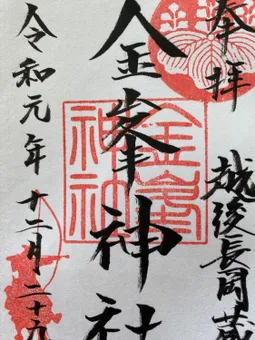 奉拝
越後長岡蔵
金峯神社
金峯神社
令和元年十二月二十九